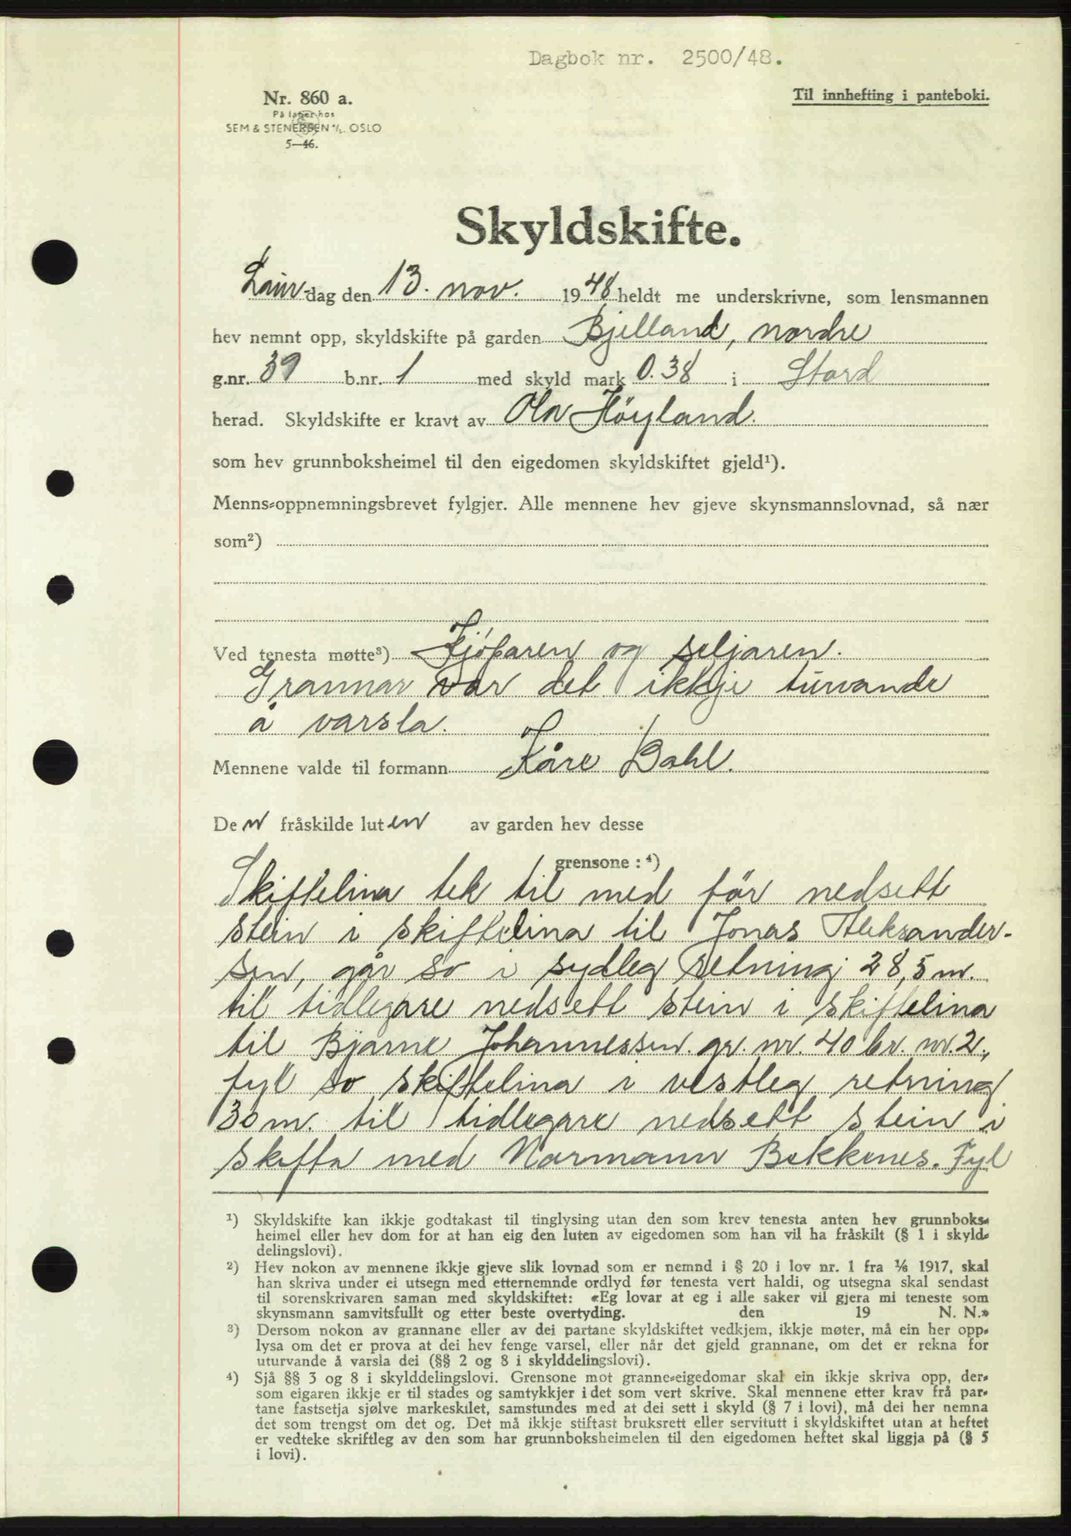 Dagbok nr. 2500/48.
Nr. 860 a.
På lager hos
SEM & STENERSEN A/S. OSLO
5—46.
Til innhefting i panteboki.
Skyldskifte.
Laur-dag den 13. nov. 1948 heldt me underskrivne, som lensmannen
hev nemnt opp, skyldskifte på garden Bjelland, nordre
g.nr. 39 b.nr. 1 med skyld mark 0.38 i Stord
herad. Skyldskifte er kravt av Ola Höyland.
som hev grunnboksheimel til den eigedomen skyldskiftet gjeld¹).
Menns-oppnemningsbrevet fylgjer. Alle mennene hev gjeve skynsmannslovnad, så nær
som²)
Ved tenesta møtte³) Kjøparen og seljaren.
Grannar var det ikkje turvande
å varsla.
Mennene valde til formann Kåre Dahl.
Den fråskilde luten av garden hev desse
grensone :⁴)
Skiftelina tek til med før nedsett
stein i skiftelina til Jonas Aleksander-
sen, går so i sydleg retning 28,5 m.
til tidlegare nedsett stein i skiftelina
til Bjarne Johannessen gr. nr. 40 br. nr. 2.,
fyl so skiftelina i vestleg retning
30 m. til tidlegare nedsett stein i
skifta med Normann Bekkenes. Fyl
¹) Skyldskifte kan ikkje godtakast til tinglysing utan den som krev tenesta anten hev grunnboks-
heimel eller hev dom for at han eig den luten av eigedomen som han vil ha fråskilt (§ 1 i skyld-
delingslovi).
²) Hev nokon av mennene ikkje gjeve slik lovnad som er nemnd i § 20 i lov nr. 1 fra 1/6 1917, skal
han skriva under ei utsegn med etternemnde ordlyd før tenesta vert haldi, og utsegna skal sendast
til sorenskrivaren saman med skyldskiftet: «Eg lovar at eg i alle saker vil gjera mi teneste som
skynsmann samvitsfullt og etter beste overtyding. den 19 N. N.»
³) Dersom nokon av grannane eller av dei partane skyldskiftet vedkjem, ikkje møter, må ein her opp-
lysa om det er prova at dei hev fenge varsel, eller når det gjeld grannane, om det er rekna for
uturvande å varsla dei (§§ 2 og 8 i skylddelingslovi).
⁴) Sjå §§ 3 og 8 i skylddelingslovi. Grensone mot granne-eigedomar skal ein ikkje skriva opp, der-
som eigaren ikkje er til stades og samtykkjer i det som vert skrive. Skal mennene etter krav frå par-
tane fastsetja sjølve markeskilet, samstundes med at dei sett i skyld (§ 7 i lovi), må dei her nemna
det som trengst om det og. Det må ikkje stiftast bruksrett eller servitutt i skyldskiftet utan at heftet
er vedteke skriftleg av den som har grunnboksheimelen til den eigedomen heftet skal liggja på (§ 5
i lovi).